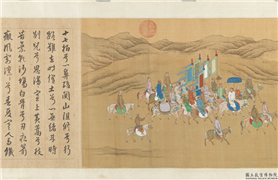 十七拍兮心鼻酸關山阻修兮行
路難去時懷土兮心無緒來時
別兒兮思漫漫塞上黃蒿兮枝
枯葉乾沙場白骨兮刀痕箭
瘢風霜凜凜兮春夏寒人馬飢
國立故宮博物院